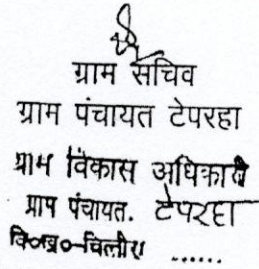 ग्राम सचिव
ग्राम पंचायत टेपरहा
ग्राम विकास अधिकारी
ग्राम पंचायत. टेपरहा
वि०ख०-चित्तौरा ......